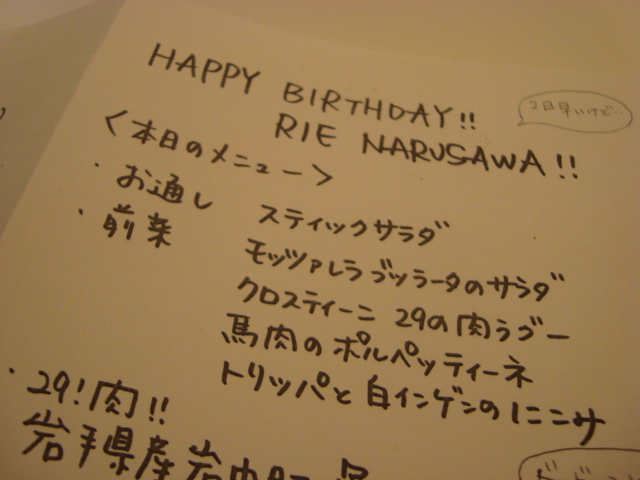 HAPPY BIRTHDAY!!
RIE NARUSAWA!!
2日早いけど…
<本日のメニュー>
・お通し スティックサラダ
・前菜 モッツァレラブッラータのサラダ
クロスティーニ 29の肉ラグー
馬肉のポルペッティーネ
トリッパと白インゲンのミニサ
・29!肉!!
岩手県産岩中